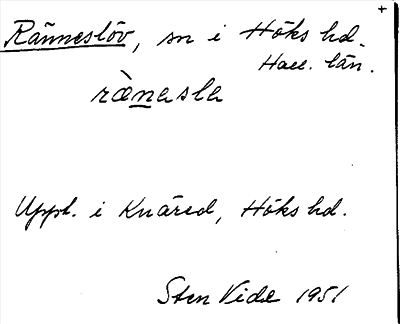 +
Ränneslöv, sn i Höks hd.
Hall. län.
rànasla
Uppt. i Knäred, Höks hd.
Sten Vide 1951